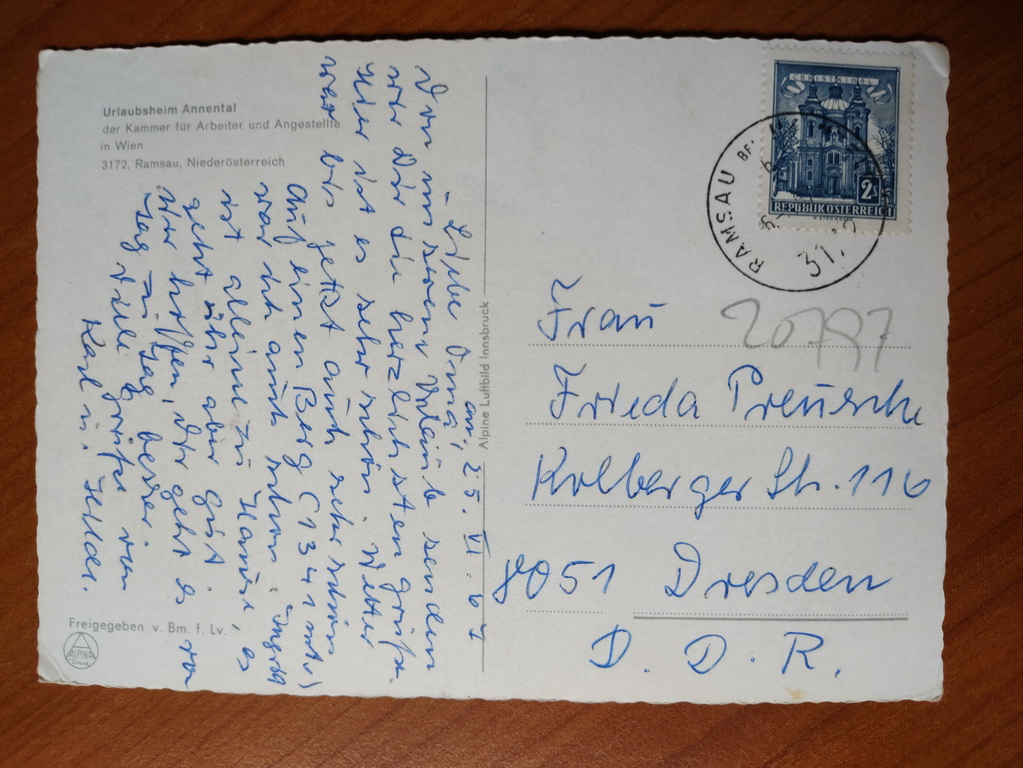 Urlaubsheim Annental
der Kammer für Arbeiter und Angestellte
in Wien
3172, Ramsau, Niederösterreich
am, 25. VI. 67
Liebe Oma!
Von unserem Urlaub senden
wir Dir die herzlichsten Grüße.
Hier ist es sehr schön. Wetter
war bis jetzt auch sehr schön
auf einen Berg (1341 mt.)
war ich auch schon. Ingrid
ist alleine zu Hause, es
geht ihr aber gut.
Wir hoffen, Dir geht es von
Tag zu Tag besser.
Viele Grüße von
Karl u. Hilde.
Freigegeben v. Bm. f. Lv.
ALPINE
Druck
Alpine Luftbild Innsbruck
CHRISTKINDL
2S
REPUBLIK ÖSTERREICH
RAMSAU BE
317
20797
Frau
Frieda Preusche
Kolberger Str. 116
8051 Dresden
D. D. R.